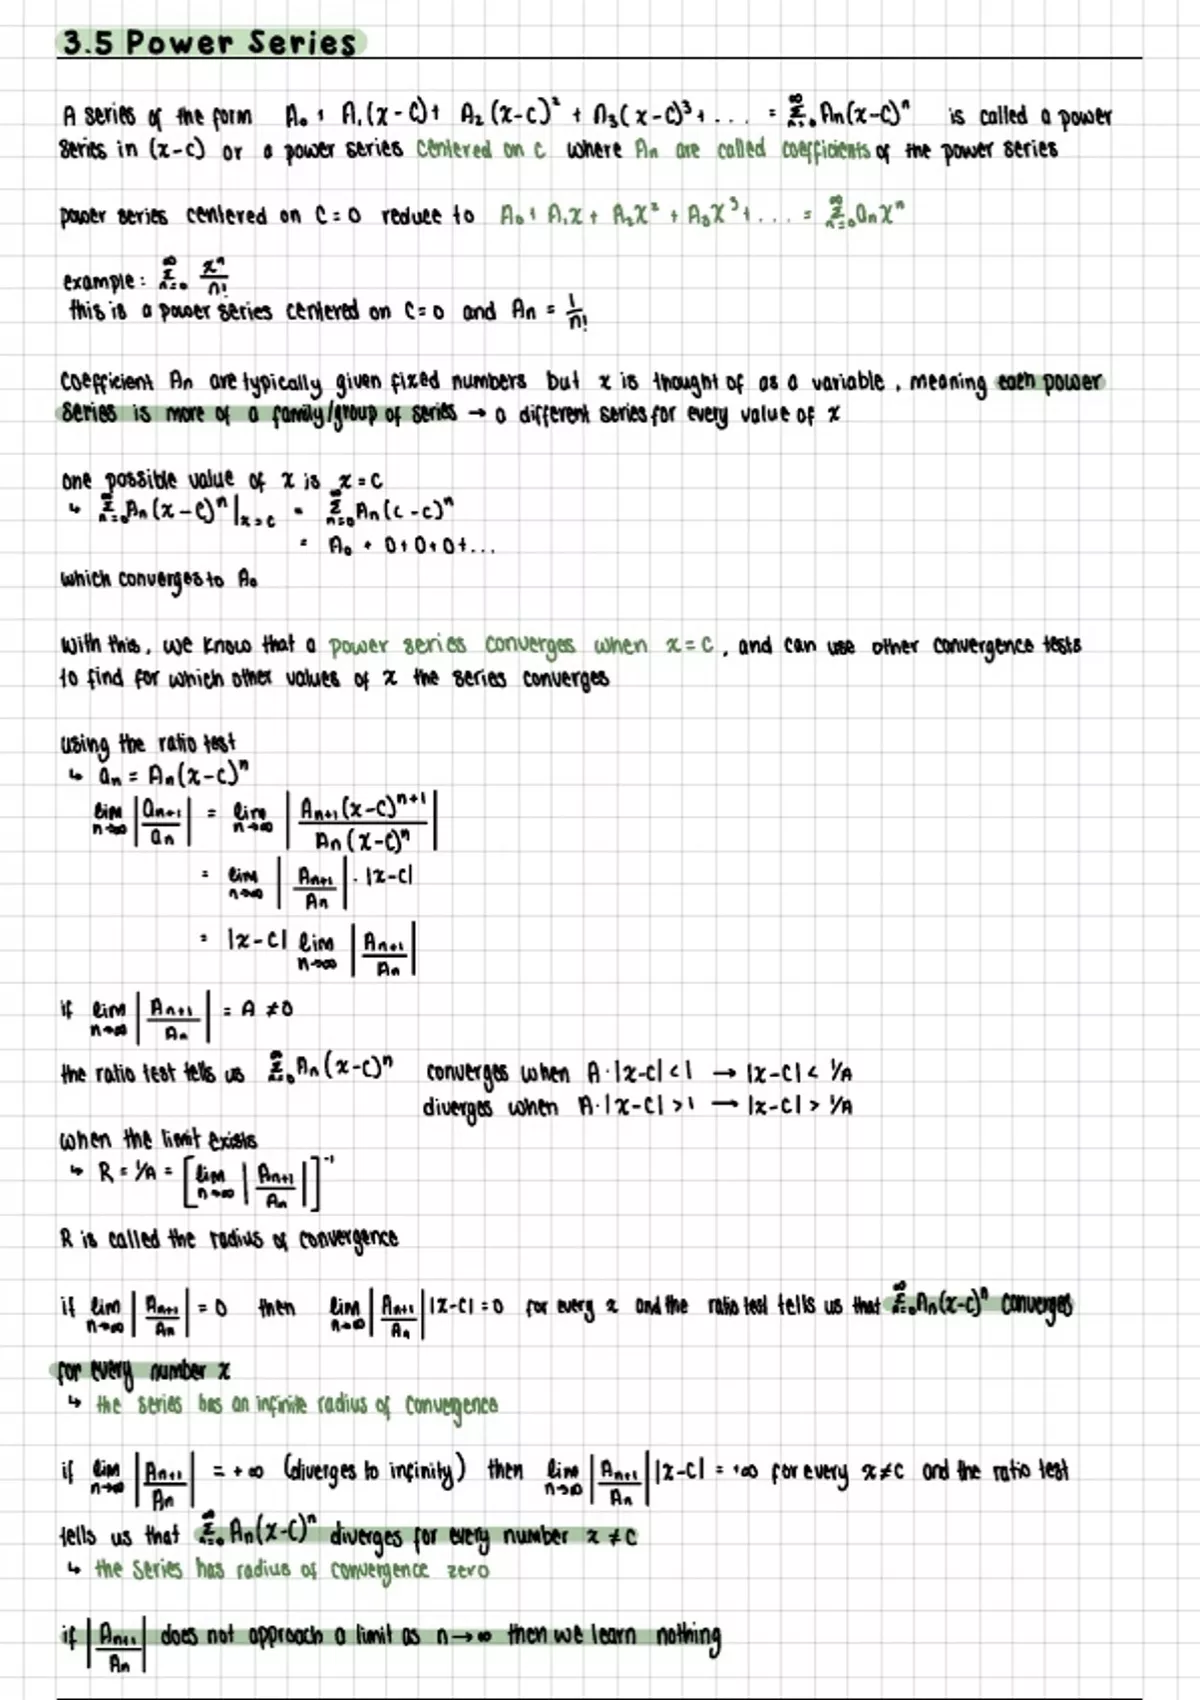 3.5 Power Series
A series of the form A₀ + A₁(x-c) + A₂(x-c)² + A₃(x-c)³ + ... = ∞Σn=0 An(x-c)ⁿ is called a power
series in (x-c) or a power series centered on c where An are called coefficients of the power series
power series centered on c=0 reduce to A₀ + A₁x + A₂x² + A₃x³ + ... = ∞Σn=0 anxⁿ
example: ∞Σn=0 xⁿ/n!
this is a power series centered on c=0 and An = 1/n!
coefficient An are typically given fixed numbers but x is thought of as a variable, meaning each power
series is more of a family/group of series → a different series for every value of x
one possible value of x is x=c
↳ ∞Σn=0 An(x-c)ⁿ|x=c = ∞Σn=0 An(c-c)ⁿ
= A₀ + 0+0+0+...
which converges to A₀
with this, we know that a power series converges when x=c, and can use other convergence tests
to find for which other values of x the series converges
using the ratio test
↳ an = An(x-c)ⁿ
lim n→∞ |an+1/an| = lim n→∞ |An+1(x-c)ⁿ⁺¹/An(x-c)ⁿ|
= lim n→∞ |An+1/An| · |x-c|
= |x-c| lim n→∞ |An+1/An|
if lim n→∞ |An+1/An| = A ≠0
the ratio test tells us ∞Σn=0 An(x-c)ⁿ converges when A·|x-c|<1 → |x-c|< 1/A
diverges when A·|x-c|>1 → |x-c|> 1/A
when the limit exists
↳ R = 1/A = [lim n→∞ |An+1/An|]⁻¹
R is called the radius of convergence
if lim n→∞ |An+1/An| = 0 then lim n→∞ |An+1/An| |x-c| = 0 for every x and the ratio test tells us that ∞Σn=0 An(x-c)ⁿ converges
for every number x
↳ the series has an infinite radius of convergence
if lim n→∞ |An+1/An| = +∞ (diverges to infinity) then lim n→∞ |An+1/An| |x-c| = +∞ for every x≠c and the ratio test
tells us that ∞Σn=0 An(x-c)ⁿ diverges for every number x ≠c
↳ the series has radius of convergence zero
if |An+1/An| does not approach a limit as n→∞ then we learn nothing